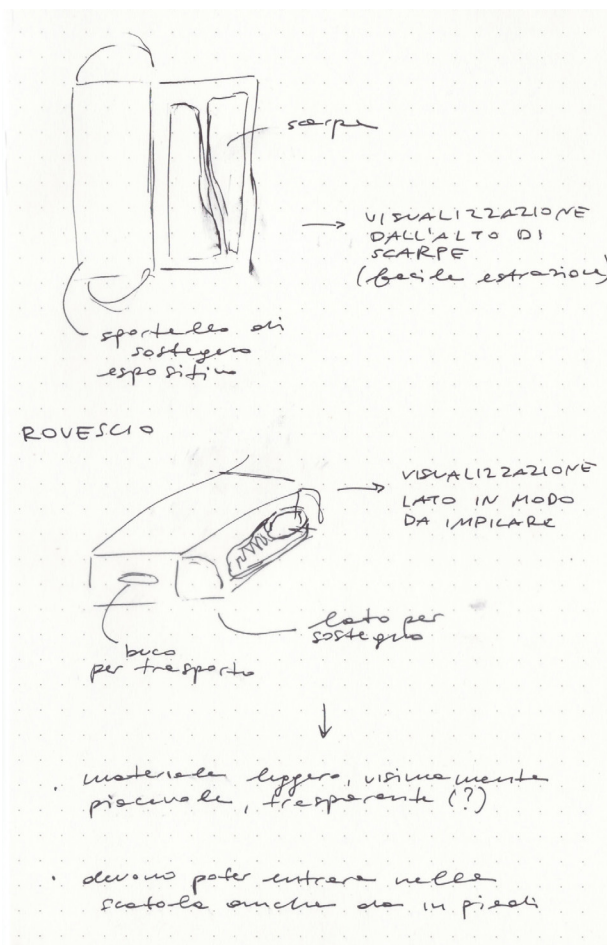 scarpe
→ VISUALIZZAZIONE
DALL'ALTO DI
SCARPE
(facile estrazione)
sportello di
sostegno
espositivo
ROVESCIO
→ VISUALIZZAZIONE
LATO IN MODO
DA IMPILARE
lato per
sostegno
buco
per trasporto
· materiale leggero, visivamente
piacevole, trasparente (?)
· devono poter entrare nella
scatola anche da in piedi